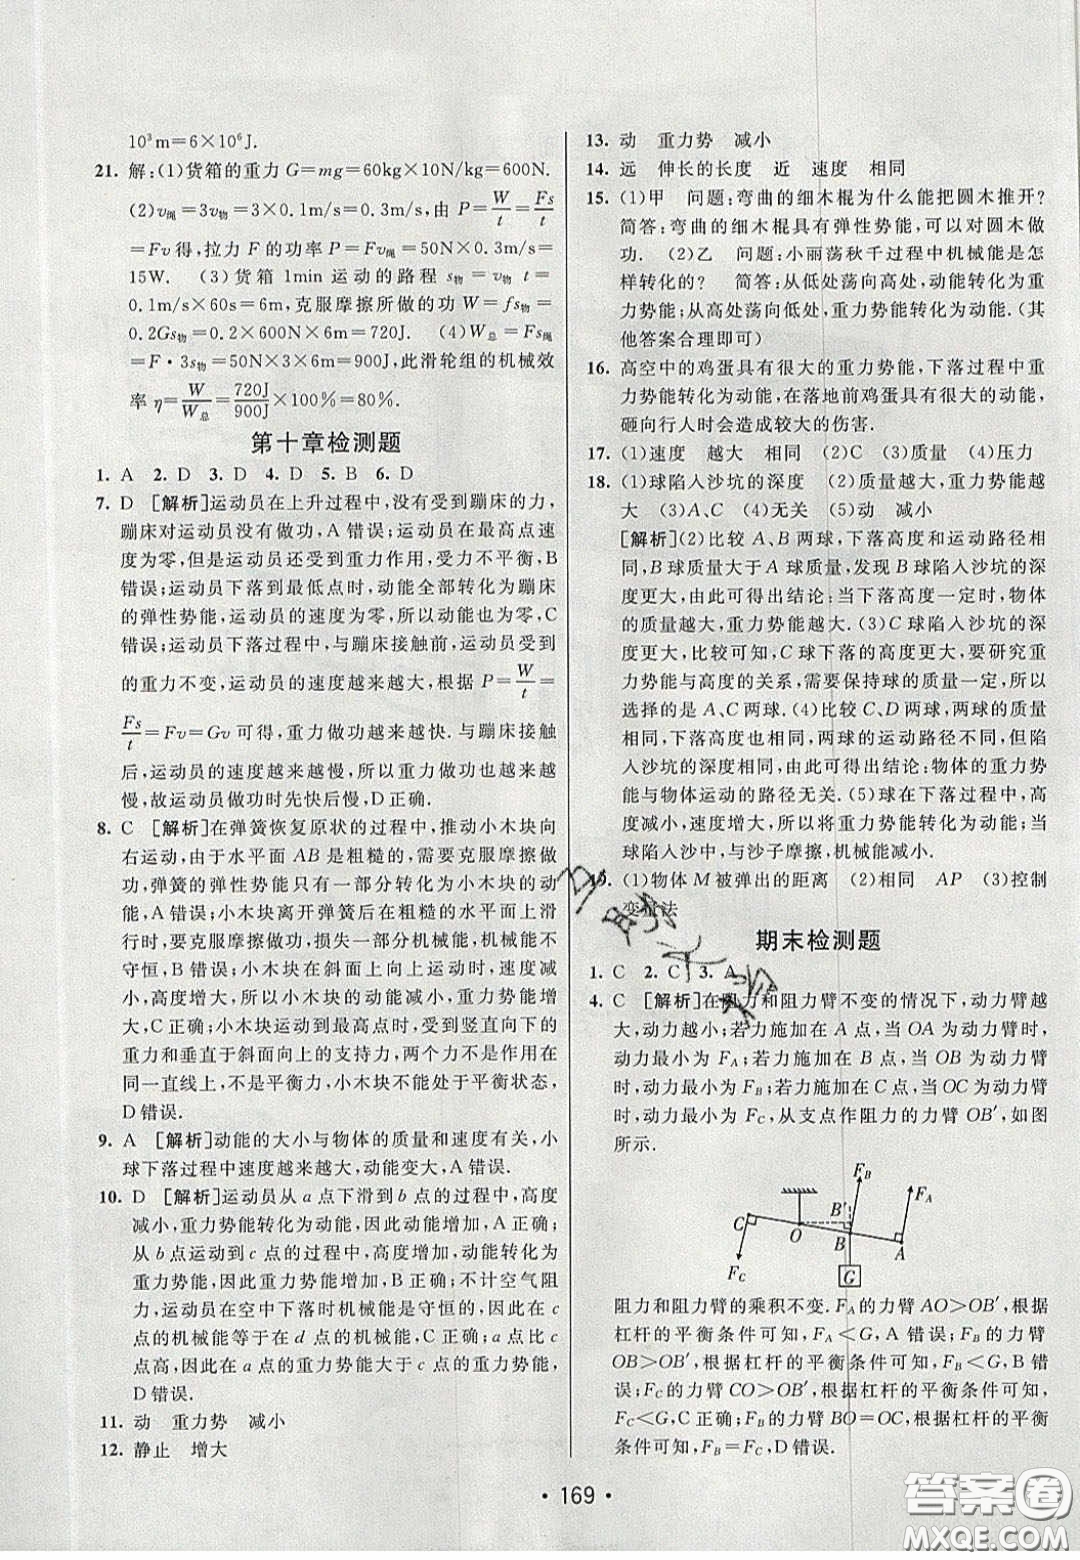 10³m=6×10⁶J.
21. 解:(1)货箱的重力G=mg=60kg×10N/kg=600N.
(2)v绳=3v物=3×0.1m/s=0.3m/s,由P=W/t=Fs/t
=Fv得,拉力F的功率P=Fv=50N×0.3m/s=
15W. (3)货箱1min运动的路程s物=v物t=
0.1m/s×60s=6m,克服摩擦所做的功W=fs物=
0.2Gs物=0.2×600N×6m=720J. (4)W总=Fs绳
=F·3s物=50N×3×6m=900J,此滑轮组的机械效
率η=W/W总=720J/900J×100%=80%.
第十章检测题
1. A 2. D 3. D 4. D 5. B 6. D
7. D [解析]运动员在上升过程中,没有受到蹦床的力,
蹦床对运动员没有做功,A错误;运动员在最高点速
度为零,但是运动员还受到重力作用,受力不平衡,B
错误;运动员下落到最低点时,动能全部转化为蹦床
的弹性势能,运动员的速度为零,所以动能也为零,C
错误;运动员下落过程中,与蹦床接触前,运动员受到
的重力不变,运动员的速度越来越大,根据P=W/t=
Fs/t=Fv=Gv可得,重力做功越来越快.与蹦床接触
后,运动员的速度越来越慢,所以重力做功也越来越
慢,故运动员做功时先快后慢,D正确.
8. C [解析]在弹簧恢复原状的过程中,推动小木块向
右运动,由于水平面AB是粗糙的,需要克服摩擦做
功,弹簧的弹性势能只有一部分转化为小木块的动
能,A错误;小木块离开弹簧后在粗糙的水平面上滑
行时,要克服摩擦做功,损失一部分机械能,机械能不
守恒,B错误;小木块在光滑斜面上向上运动时,速度
减小,高度增大,所以小木块的动能减小,重力势能增
大,C正确;小木块运动到最高点时,受到竖直向下的
重力和垂直于斜面向上的支持力,两个力不是作用在
同一直线上,不是平衡力,小木块不能处于平衡状态,
D错误.
9. A [解析]动能的大小与物体的质量和速度有关,小
球下落过程中速度越来越大,动能变大,A错误.
10. D [解析]运动员从a点下滑到b点的过程中,高度
减小,重力势能转化为动能,因此动能增加,A正确;
从b点运动到c点的过程中,高度增加,动能转化为
重力势能,因此重力势能增加,B正确;不计空气阻
力,运动员在空中下落时机械能是守恒的,因此在c
点的机械能等于在d点的机械能,C正确;a点比c
点高,因此在a点的重力势能大于c点的重力势能,
D错误.
11. 动 重力势 减小
12. 静止 增大
13. 动 重力势 减小
14. 远 伸长的长度 近 速度 相同
15. (1)甲 问题:弯曲的细木棍为什么能把圆木推开?
简答:弯曲的细木棍具有弹性势能,可以对圆木做
功. (2)乙 问题:小丽荡秋千过程中机械能是怎
样转化的? 简答:从低处荡向高处,动能转化为重
力势能;从高处荡向低处,重力势能转化为动能.(其
他答案合理即可)
16. 高空中的鸡蛋具有很大的重力势能,下落过程中重
力势能转化为动能,在落地前鸡蛋具有很大的动能,
砸向行人时会造成较大的伤害.
17. (1)速度 越大 相同 (2)不同 (3)质量 (4)压力
18. (1)球陷入沙坑的深度 (2)质量越大,重力势能越
大 (3)A、C (4)无关 (5)动 减小
[解析](2)比较A、B两球,下落高度和运动路径相
同,B球质量大于A球质量,发现B球陷入沙坑的深
度更大,可得出结论:当下落高度一定时,物体
的质量越大,重力势能越大.(3)C球陷入沙坑的深
度更大,比较可知,C球下落的高度更大,要研究重
力势能与高度的关系,需要保持球的质量一定,所以
选择的是A、C两球.(4)比较C、D两球,两球的质量
相同,下落高度也相同,两球的运动路径不同,但陷
入沙坑的深度相同,由此可得出结论:物体的重力势
能与物体运动的路径无关.(5)球在下落过程中,高
度减小,速度增大,所以重力势能转化为动能;当
球陷入沙中,与沙子摩擦,机械能减小.
19. (1)物体M被弹出的距离 (2)相同 AP (3)控制
变量法
期末检测题
1. C 2. C 3. A
4. C [解析]在阻力和阻力臂不变的情况下,动力臂越
大,动力越小;若力施加在A点,当OA为动力臂时,
动力最小为F_A;若力施加在B点,当OB为动力臂
时,动力最小为F_B;若力施加在C点,当OC为动力臂
时,动力最小为F_C,从支点作阻力的力臂OB′,如图
所示.
F_B
F_A
C
O
B′
B
A
F_C
G
阻力和阻力臂的乘积不变.F_A的力臂AO>OB′,根
据杠杆的平衡条件可知,F_A<G,A错误;F_B的力臂
OB>OB′,根据杠杆的平衡条件可知,F_B<G,B错
误;F_C的力臂CO>OB′,根据杠杆的平衡条件可知,
F_C<G,C正确;B、C两点的力臂BO=OC,根据杠杆的平衡
条件可知,F_B=F_C,D错误.
·169·
答案圈
MXQE.COM